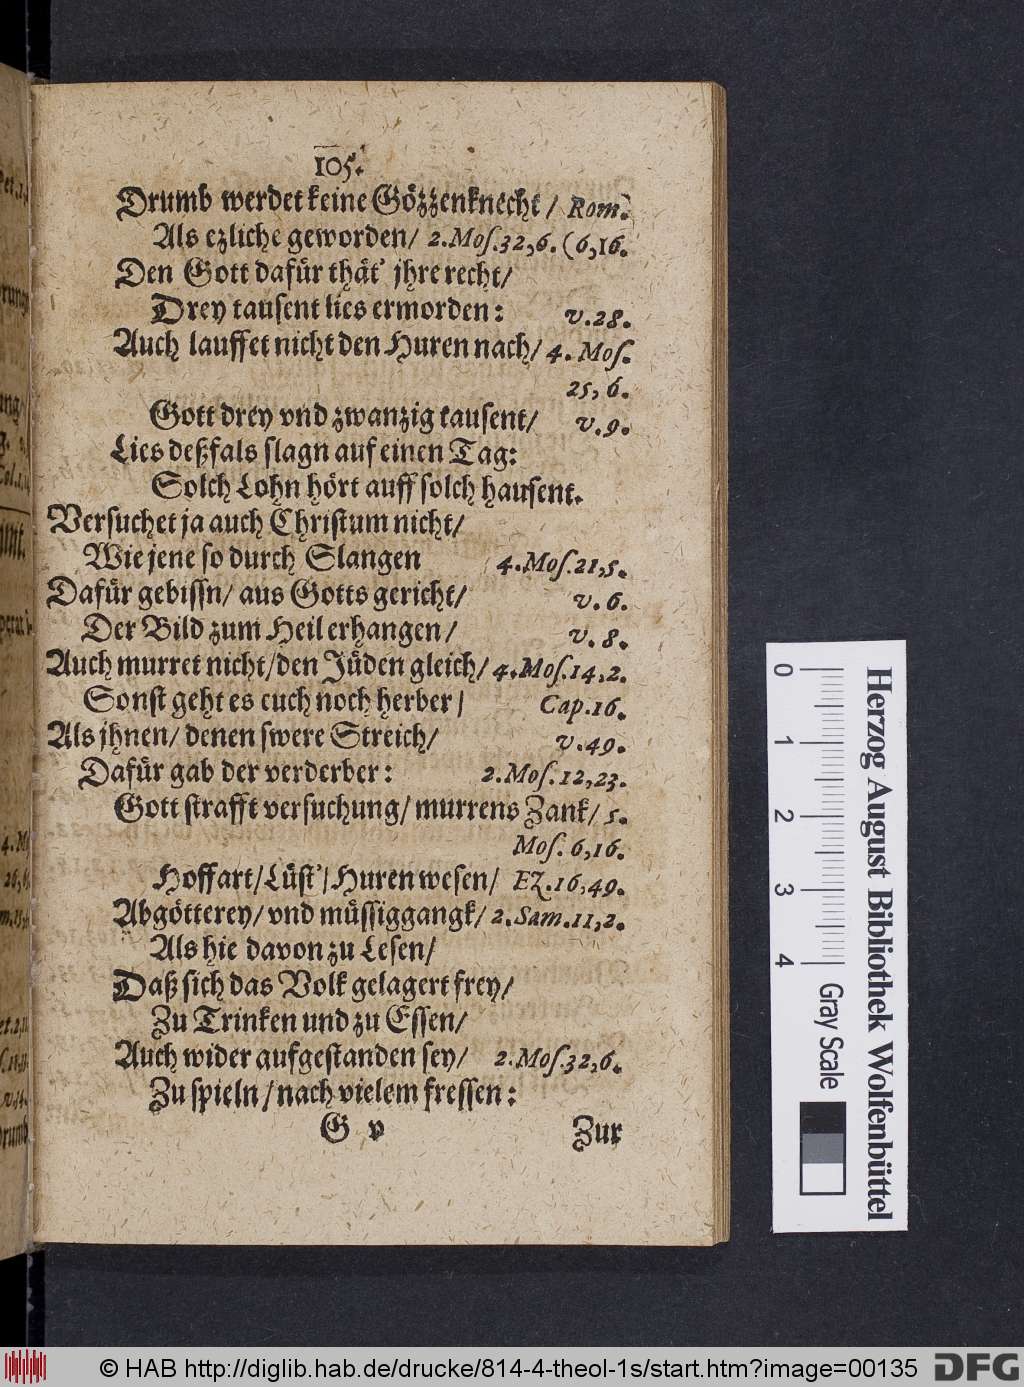 105.
Drumb werdet keine Gözzenknecht / Rom.
Als ezliche geworden / 2.Mos.32,6. (6,16.
Den Gott dafür thät' jhre recht /
Drey tausent lies ermorden : v.28.
Auch lauffet nicht den Huren nach / 4. Mos.
25, 6.
Gott drey vnd zwanzig tausent / v.9.
Lies deßfals slagn auf einen Tag :
Solch Lohn hört auff solch hausent.
Versuchet ja auch Christum nicht /
Wie jene so durch Slangen 4.Mos.21,5.
Dafür gebissn / aus Gotts gericht / v. 6.
Der Bild zum Heil erhangen / v. 8.
Auch murret nicht / den Jüden gleich / 4.Mos.14,2.
Sonst geht es euch noch herber / Cap.16.
Als jhnen / denen swere Streich / v.49.
Dafür gab der verderber : 2.Mos.12,23.
Gott strafft versuchung / murrens Zank / 5.
Mos. 6,16.
Hoffart / Lüst' / Huren wesen / EZ.16,49.
Abgötterey / vnd müssiggangk / 2.Sam.11,2.
Als hie davon zu Lesen /
Daß sich das Volk gelagert frey /
Zu Trinken und zu Essen /
Auch wider aufgestanden sey / 2.Mos.32,6.
Zu spieln / nach vielem fressen :
G v Zur
0 1 2 3 4 Gray Scale
Herzog August Bibliothek Wolfenbüttel
© HAB http://diglib.hab.de/drucke/814-4-theol-1s/start.htm?image=00135 DFG